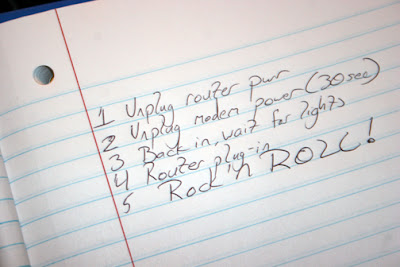 1 Unplug router pwr
2 Unplug modem power (30sec)
3 Back in, wait for lights
4 Router plug-in
5 Rock 'n ROLL!